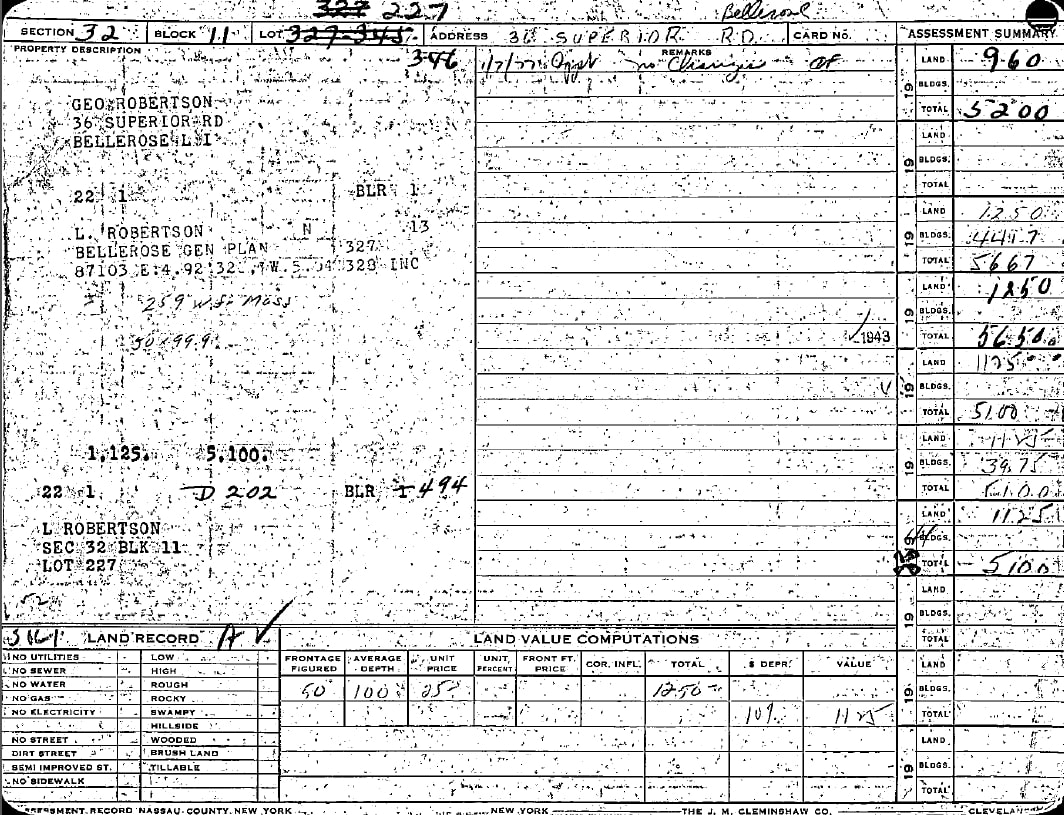 327 227
Bellerose
SECTION 32 BLOCK 11 LOT 327-345 ADDRESS 36 SUPERIOR RD. CARD NO.
ASSESSMENT SUMMARY
PROPERTY DESCRIPTION
346
REMARKS
1/7/77 no Changes
GEO ROBERTSON
36 SUPERIOR RD
BELLEROSE L I
22 1 BLR 1
L. ROBERTSON N 13
BELLEROSE GEN PLAN 327
87103 E 4.92 32 W 5.04 328 INC
259 w s Moss
50x99.9
1,125. 5,100.
22 1 D 202 BLR I 494
L ROBERTSON
SEC 32 BLK 11
LOT 227
1943
19 LAND 960
BLDGS.
TOTAL 5200
19 LAND
BLDGS.
TOTAL
19 LAND 1250
BLDGS. 4417
TOTAL 5667
19 LAND 1250
BLDGS.
TOTAL 5650
19 LAND 1125
BLDGS.
TOTAL 5100
19 LAND 1125
BLDGS. 3975
TOTAL 5100
LAND 1125
BLDGS.
TOTAL 5100
19 LAND
BLDGS.
TOTAL
19 LAND
BLDGS.
TOTAL
19 LAND
BLDGS.
TOTAL
LAND RECORD
NO UTILITIES LOW
NO SEWER HIGH
NO WATER ROUGH
NO GAS ROCKY
NO ELECTRICITY SWAMPY
HILLSIDE
NO STREET WOODED
DIRT STREET BRUSH LAND
SEMI IMPROVED ST. TILLABLE
NO SIDEWALK
LAND VALUE COMPUTATIONS
FRONTAGE FIGURED AVERAGE DEPTH UNIT PRICE UNIT PERCENT FRONT FT. PRICE COR. INFL. TOTAL $ DEPR. VALUE
50 100 25 1250
10% 1125
ASSESSMENT RECORD NASSAU COUNTY, NEW YORK NEW YORK THE J. M. CLEMINSHAW CO. CLEVELAND